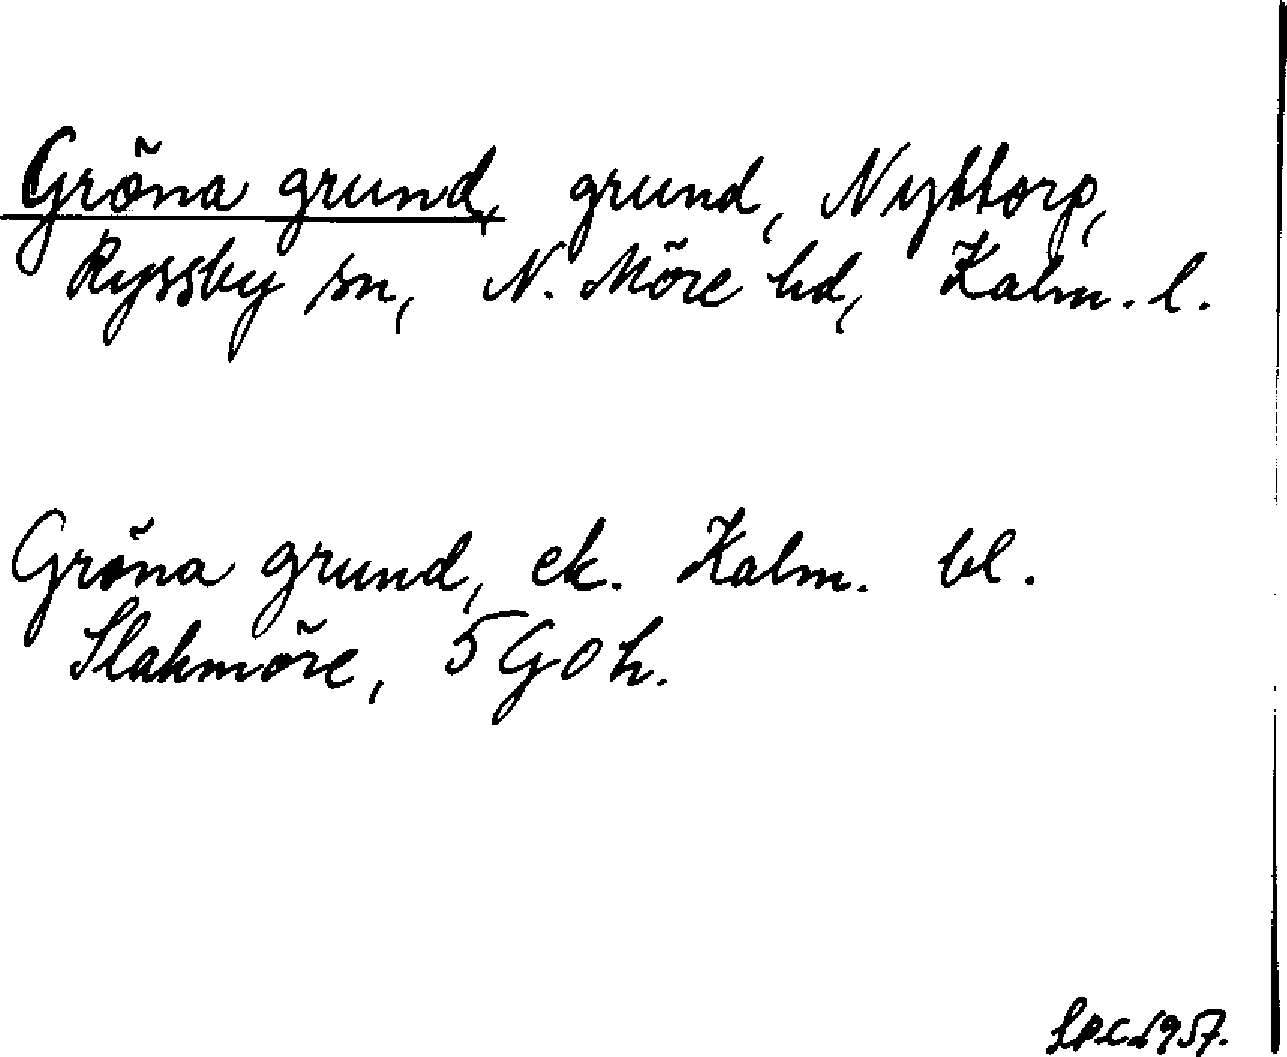 Gröna grund, grund, Nyttorp,
Ryssby sn, N. Möre hd, Kalm. l.
Gröna grund, ek. Kalm. bl.
Slakmöre, 5 G O h.
1957.